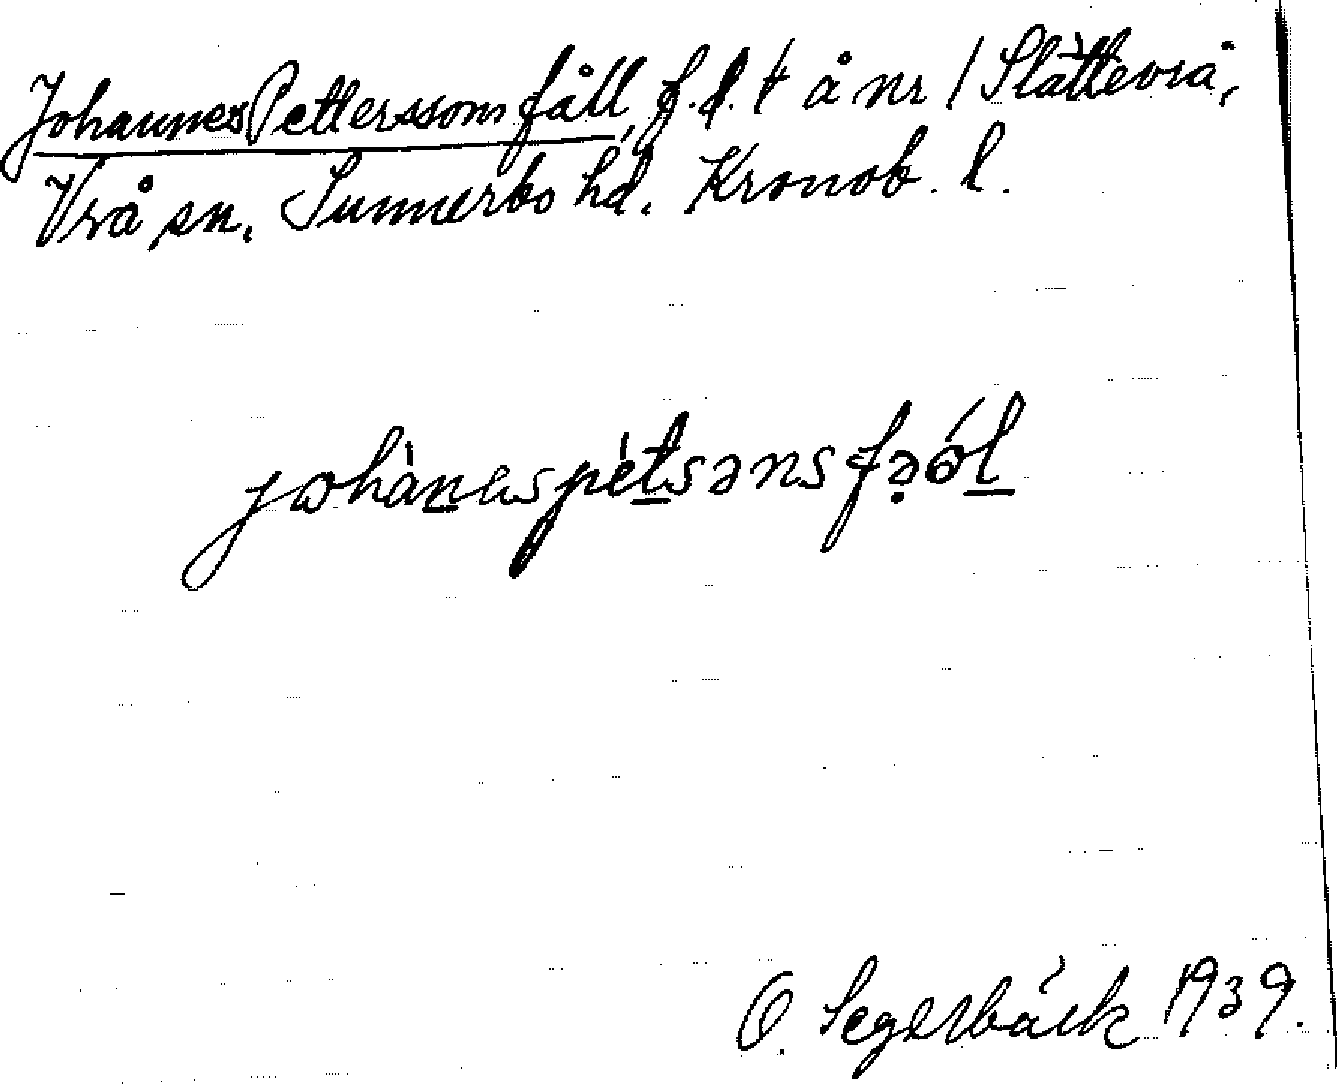 Johannes Petterssons fåll, f.d. t å nr 1 Slättevrå,
Vrå sn. Sunnerbo hd. Kronob. l.
johànas pètsəns fə̣ól
O. Segerbäck 1939.